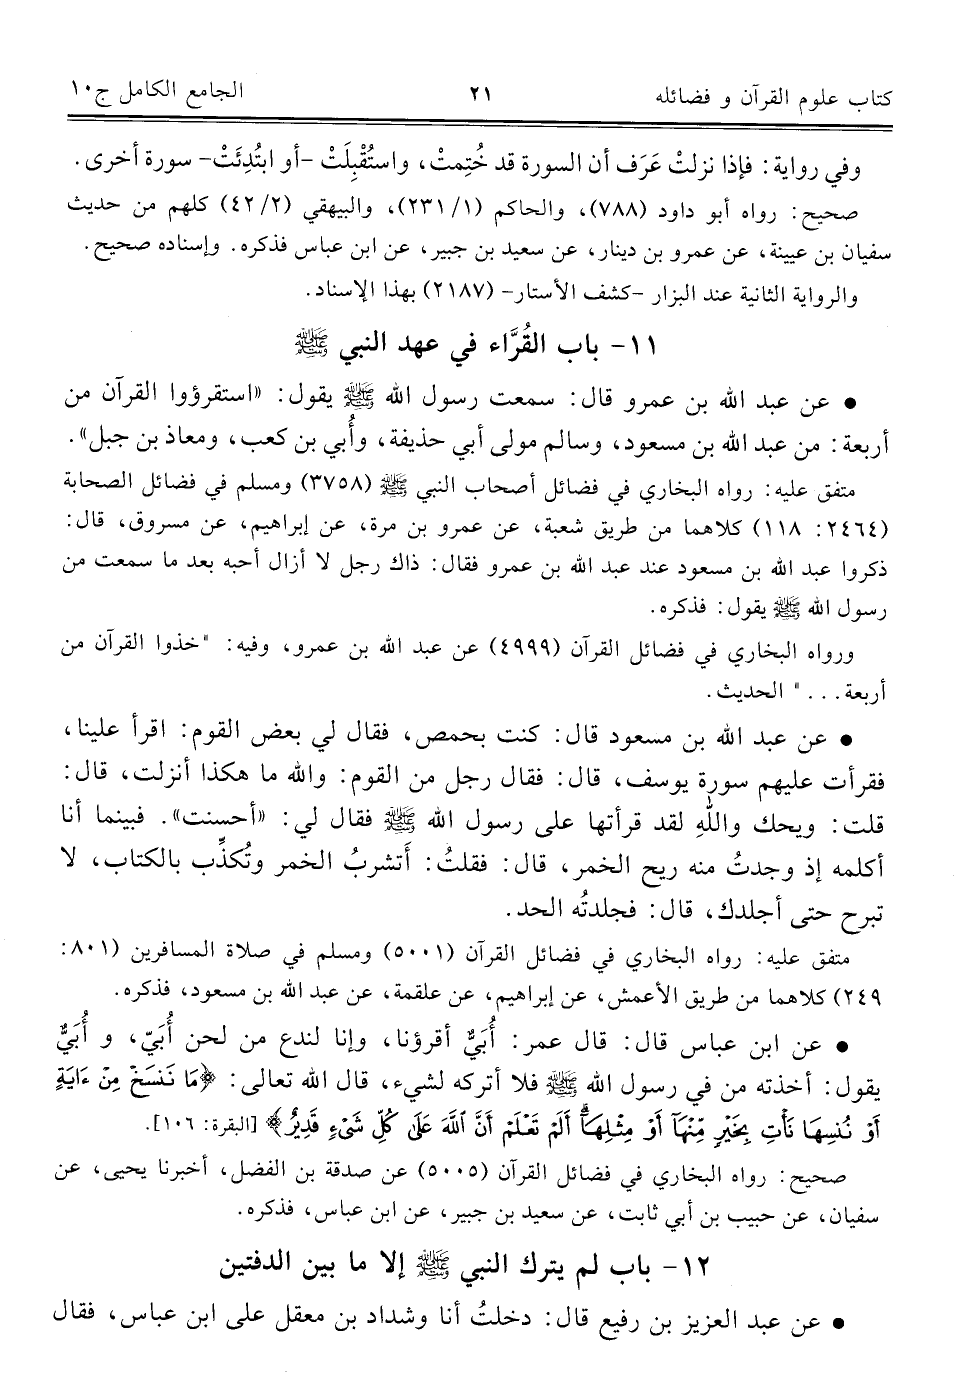 كتاب علوم القرآن و فضائله ٢١ الجامع الكامل ج١٠
وفي رواية: فإذا نزلتْ عَرَف أن السورة قد خُتِمتْ، واستُقْبِلَتْ -أو ابتُدِئَتْ- سورة أخرى.
صحيح: رواه أبو داود (٧٨٨)، والحاكم (١/ ٢٣١)، والبيهقي (٢/ ٤٢) كلهم من حديث
سفيان بن عيينة، عن عمرو بن دينار، عن سعيد بن جبير، عن ابن عباس فذكره. وإسناده صحيح.
والرواية الثانية عند البزار -كشف الأستار- (٢١٨٧) بهذا الإسناد.
١١- باب القُرَّاء في عهد النبي ﷺ
• عن عبد الله بن عمرو قال: سمعت رسول الله ﷺ يقول: «استقرؤوا القرآن من
أربعة: من عبد الله بن مسعود، وسالم مولى أبي حذيفة، وأُبي بن كعب، ومعاذ بن جبل».
متفق عليه: رواه البخاري في فضائل أصحاب النبي ﷺ (٣٧٥٨) ومسلم في فضائل الصحابة
(٢٤٦٤: ١١٨) كلاهما من طريق شعبة، عن عمرو بن مرة، عن إبراهيم، عن مسروق، قال:
ذكروا عبد الله بن مسعود عند عبد الله بن عمرو فقال: ذاك رجل لا أزال أحبه بعد ما سمعت من
رسول الله ﷺ يقول: فذكره.
ورواه البخاري في فضائل القرآن (٤٩٩٩) عن عبد الله بن عمرو، وفيه: "خذوا القرآن من
أربعة..." الحديث.
• عن عبد الله بن مسعود قال: كنت بحمص، فقال لي بعض القوم: اقرأ علينا،
فقرأت عليهم سورة يوسف، قال: فقال رجل من القوم: والله ما هكذا أنزلت، قال:
قلت: ويحك واللهِ لقد قرأتها على رسول الله ﷺ فقال لي: «أحسنت». فبينما أنا
أكلمه إذ وجدتُ منه ريح الخمر، قال: فقلتُ: أَتشربُ الخمر وتُكذِّب بالكتاب، لا
تبرح حتى أجلدك، قال: فجلدتُه الحد.
متفق عليه: رواه البخاري في فضائل القرآن (٥٠٠١) ومسلم في صلاة المسافرين (٨٠١:
٢٤٩) كلاهما من طريق الأعمش، عن إبراهيم، عن علقمة، عن عبد الله بن مسعود، فذكره.
• عن ابن عباس قال: قال عمر: أُبَيٌّ أقرؤنا، وإنا لندع من لحن أُبَيّ، و أُبَيٌّ
يقول: أخذته من في رسول الله ﷺ فلا أتركه لشيء، قال الله تعالى: ﴿مَا نَنسَخْ مِنْ ءَايَةٍ
أَوْ نُنسِهَا نَأْتِ بِخَيْرٍ مِّنْهَآ أَوْ مِثْلِهَآ أَلَمْ تَعْلَمْ أَنَّ ٱللَّهَ عَلَىٰ كُلِّ شَىْءٍ قَدِيرٌ﴾ [البقرة: ١٠٦].
صحيح: رواه البخاري في فضائل القرآن (٥٠٠٥) عن صدقة بن الفضل، أخبرنا يحيى، عن
سفيان، عن حبيب بن أبي ثابت، عن سعيد بن جبير، عن ابن عباس، فذكره.
١٢- باب لم يترك النبي ﷺ إلا ما بين الدفتين
• عن عبد العزيز بن رفيع قال: دخلتُ أنا وشداد بن معقل على ابن عباس، فقال